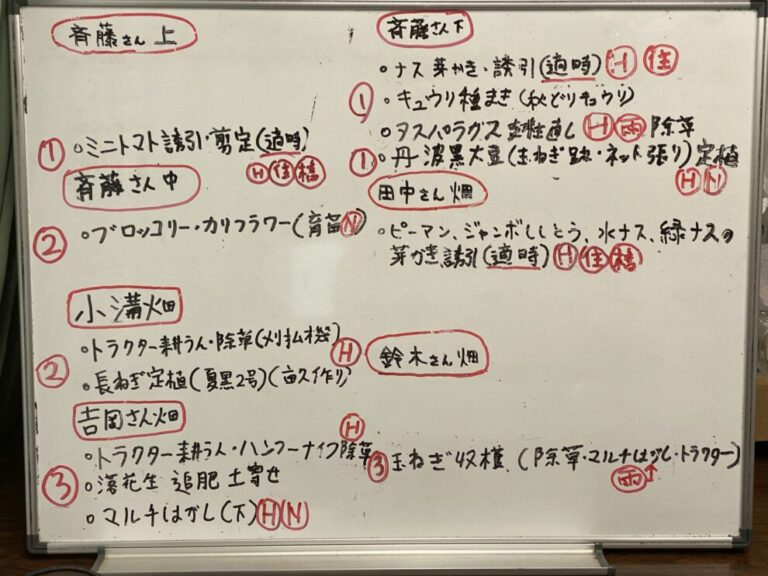 斉藤さん 上
① ○ミニトマト誘引・剪定(適時)
H 住 橋
斉藤さん 中
② ○ブロッコリー・カリフラワー(育苗 N
小溝畑
○トラクター耕うん・除草(刈払機) H
② ○長ねぎ定植(夏黒2号)(畝作り)
吉岡さん畑
H
○トラクター耕うん・ハンマーナイフ除草
③ ○落花生 追肥 土寄せ
○マルチはがし(下) H N
斉藤さん下
○ナス芽かき・誘引(適時) H 住
① ○キュウリ種まき(秋どりキュウリ)
○アスパラガス 直し H 雨 除草
① ○丹波黒大豆(玉ねぎ跡・ネット張り)定植
H N
田中さん畑
○ピーマン、ジャンボししとう、水ナス、緑ナスの
芽かき誘引(適時) H 住 橋
鈴木さん畑
③ 玉ねぎ収穫、(除草・マルチはがし・トラクター)
雨